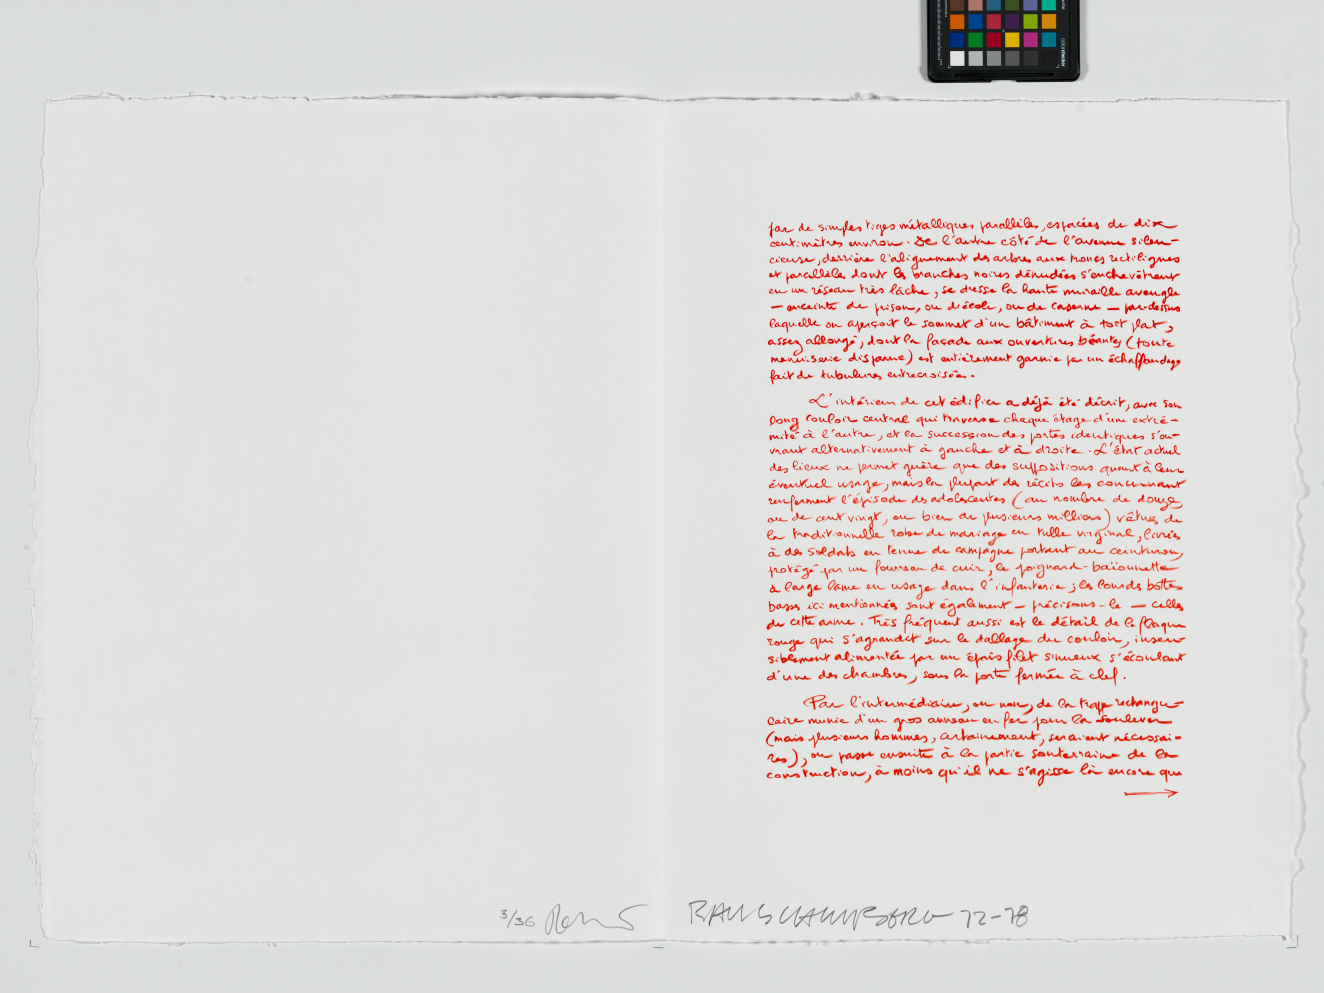 par de simples tiges métalliques parallèles, espacées de dix
centimètres environ. De l'autre côté de l'avenue silen-
cieuse, derrière l'alignement des arbres aux troncs rectilignes
et parallèles dont les branches noires dénudées s'enchevêtrent
en un réseau très lâche, se dresse la haute muraille aveugle
— enceinte de prison, ou d'école, ou de caserne — par-dessus
laquelle on aperçoit le sommet d'un bâtiment à toit plat,
assez allongé, dont la façade aux ouvertures béantes (toute
menuiserie disparue) est entièrement garnie par un échaffaudage
fait de tubulures entrecroisées.
L'intérieur de cet édifice a déjà été décrit, avec son
long couloir central qui traverse chaque étage d'une extré-
mité à l'autre, et la succession des portes identiques s'ou-
vrant alternativement à gauche et à droite. L'état actuel
des lieux ne permet guère que des suppositions quant à leur
éventuel usage, mais la plupart des récits les concernant
renferment l'épisode des adolescentes (au nombre de douze,
ou de cent vingt, ou bien de plusieurs millions) vêtues de
la traditionnelle robe de mariage en tulle virginal, livrées
à des soldats en tenue de campagne portant au ceinturon,
protégé par un fourreau de cuir, le poignard-baïonnette
à large lame en usage dans l'infanterie ; les lourdes bottes
basses ici mentionnées sont également — précisons-le — celles
de cette arme. Très fréquent aussi est le détail de la flaque
rouge qui s'agrandit sur le dallage du couloir, insen-
siblement alimentée par un épais filet sinueux s'écoulant
d'une des chambres, sous la porte fermée à clef.
Par l'intermédiaire, ou non, de la trappe rectangu-
laire munie d'un gros anneau en fer pour la soulever
(mais plusieurs hommes, certainement, seraient nécessai-
res), on passe ensuite à la partie souterraine de la
construction, à moins qu'il ne s'agisse là encore que
3/36
RAUSCHENBERG 72-78